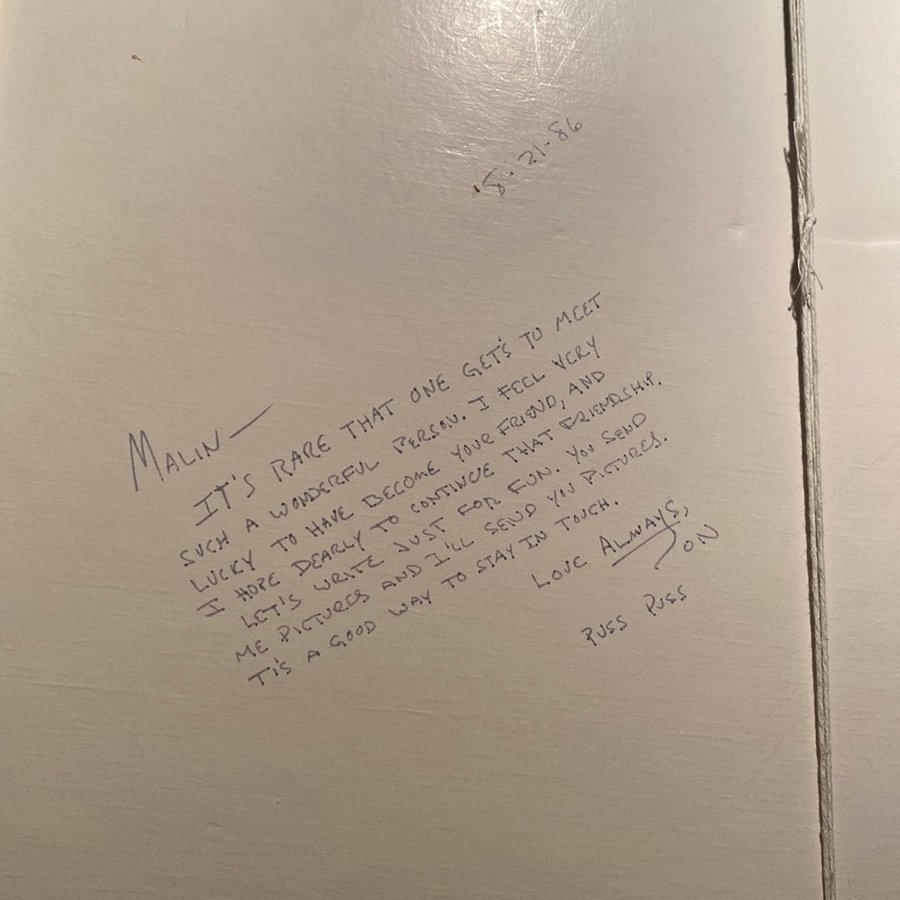 8·21·86
MALIN—
IT'S RARE THAT ONE GET'S TO MEET
SUCH A WONDERFUL PERSON. I FEEL VERY
LUCKY TO HAVE BECOME YOUR FRIEND, AND
I HOPE DEARLY TO CONTINUE THAT FRIENDSHIP.
LET'S WRITE JUST FOR FUN. YOU SEND
ME PICTURES AND I'LL SEND YOU PICTURES.
TIS A GOOD WAY TO STAY IN TOUCH.
LOVE ALWAYS,
JON
PUSS PUSS